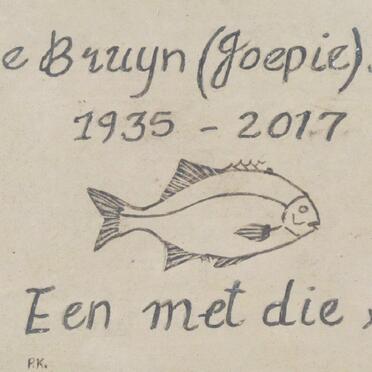 e Bruyn (Joepie).
1935 - 2017
Een met die
P.K.